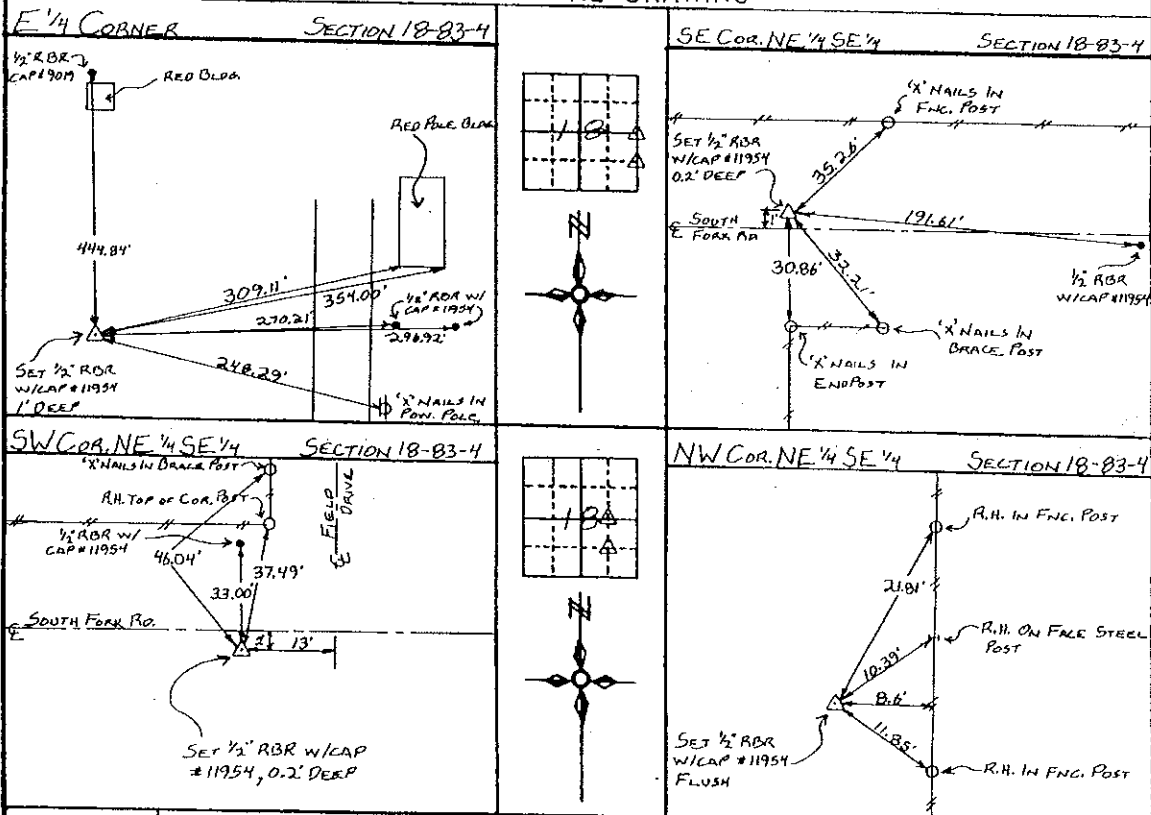 E 1/4 CORNER SECTION 18-83-4
1/2" RBR
CAP # 9019
RED BLDG.
RED POLE BLDG
444.84'
309.11'
354.00'
1/2" RBR W/
CAP #11954
270.21'
296.92'
248.29'
SET 1/2" RBR
W/CAP #11954
1' DEEP
'X' NAILS IN
POW. POLE
18
N
SE COR. NE 1/4 SE 1/4 SECTION 18-83-4
'X' NAILS IN
FNC. POST
SET 1/2" RBR
W/CAP #11954
0.2' DEEP
35.26'
1'
191.61'
℄ SOUTH
FORK RD
30.86'
32.21'
1/2" RBR
W/CAP #11954
'X' NAILS IN
BRACE POST
'X' NAILS IN
ENDPOST
SW COR. NE 1/4 SE 1/4 SECTION 18-83-4
'X' NAILS IN BRACE POST
R.H. TOP OF COR. POST
1/2" RBR W/
CAP #11954
℄ FIELD
DRIVE
46.04'
37.49'
33.00'
℄ SOUTH FORK RD.
2'
13'
SET 1/2" RBR W/CAP
#11954, 0.2' DEEP
18
N
NW COR. NE 1/4 SE 1/4 SECTION 18-83-4
R.H. IN FNC. POST
21.81'
R.H. ON FACE STEEL
POST
10.39'
8.6'
11.85'
SET 1/2" RBR
W/CAP #11954
FLUSH
R.H. IN FNC. POST